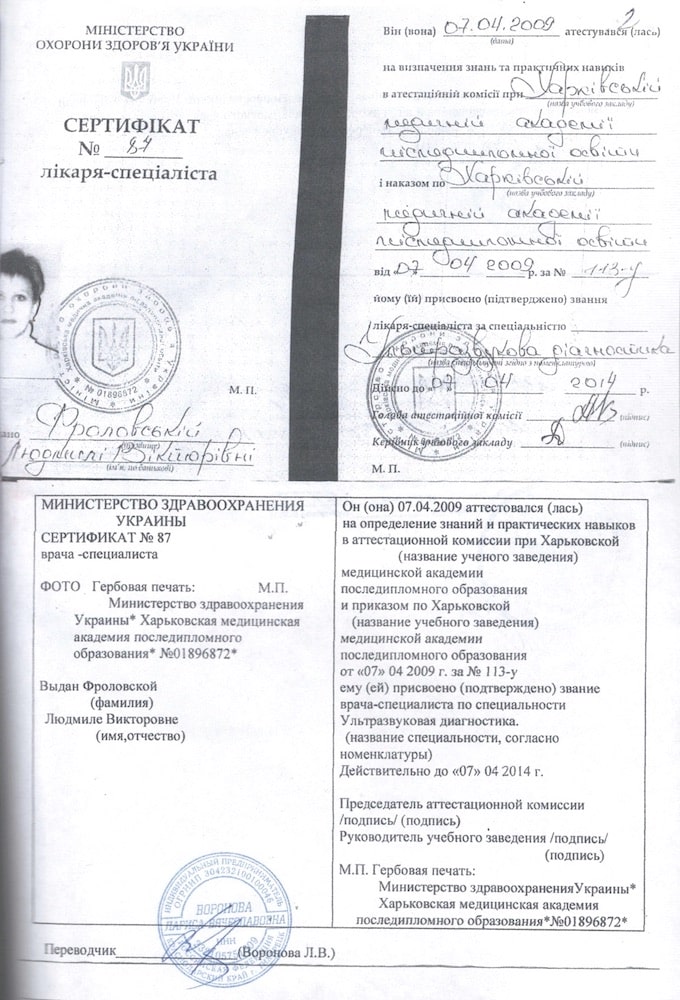 МІНІСТЕРСТВО
ОХОРОНИ ЗДОРОВ'Я УКРАЇНИ
СЕРТИФІКАТ
№ 87
лікаря-спеціаліста
М. П.
Фроловській
(прізвище)
Людмилі Вікторівні
(ім'я, по батькові)
2
Він (вона) 07.04.2009 атестувався (лась)
(дата)
на визначення знань та практичних навиків
в атестаційній комісії при Харківській
(назва учбового закладу)
медичній академії
післядипломної освіти
і наказом по Харківській
(назва учбового закладу)
медичній академії
післядипломної освіти
від „07” 04 2009 р. за № 113-у
йому (їй) присвоєно (підтверджено) звання
лікаря-спеціаліста за спеціальністю
Ультразвукова діагностика
(назва спеціальності згідно з номенклатурою)
Дійсно до „07” 04 2014 р.
Голова атестаційної комісії (підпис)
Керівник учбового закладу (підпис)
М. П.
МИНИСТЕРСТВО ЗДРАВООХРАНЕНИЯ
УКРАИНЫ
СЕРТИФИКАТ № 87
врача -специалиста
ФОТО Гербовая печать: М.П.
Министерство здравоохранения
Украины* Харьковская медицинская
академия последипломного
образования* №01896872*
Выдан Фроловской
(фамилия)
Людмиле Викторовне
(имя,отчество)
Он (она) 07.04.2009 аттестовался (лась)
на определение знаний и практических навыков
в аттестационной комиссии при Харьковской
(название ученого заведения)
медицинской академии
последипломного образования
и приказом по Харьковской
(название учебного заведения)
медицинской академии
последипломного образования
от «07» 04 2009 г. за № 113-у
ему (ей) присвоено (подтверждено) звание
врача-специалиста по специальности
Ультразвуковая диагностика.
(название специальности, согласно
номенклатуры)
Действительно до «07» 04 2014 г.
Председатель аттестационной комиссии
/подпись/ (подпись)
Руководитель учебного заведения /подпись/
(подпись)
М.П. Гербовая печать:
Министерство здравоохраненияУкраины*
Харьковская медицинская академия
последипломного образования*№01896872*
ИНДИВИДУАЛЬНЫЙ ПРЕДПРИНИМАТЕЛЬ
ОГРНИП 304232100100046
ВОРОНОВА
ЛАРИСА ВЯЧЕСЛАВОВНА
ИНН
Переводчик (Воронова Л.В.)